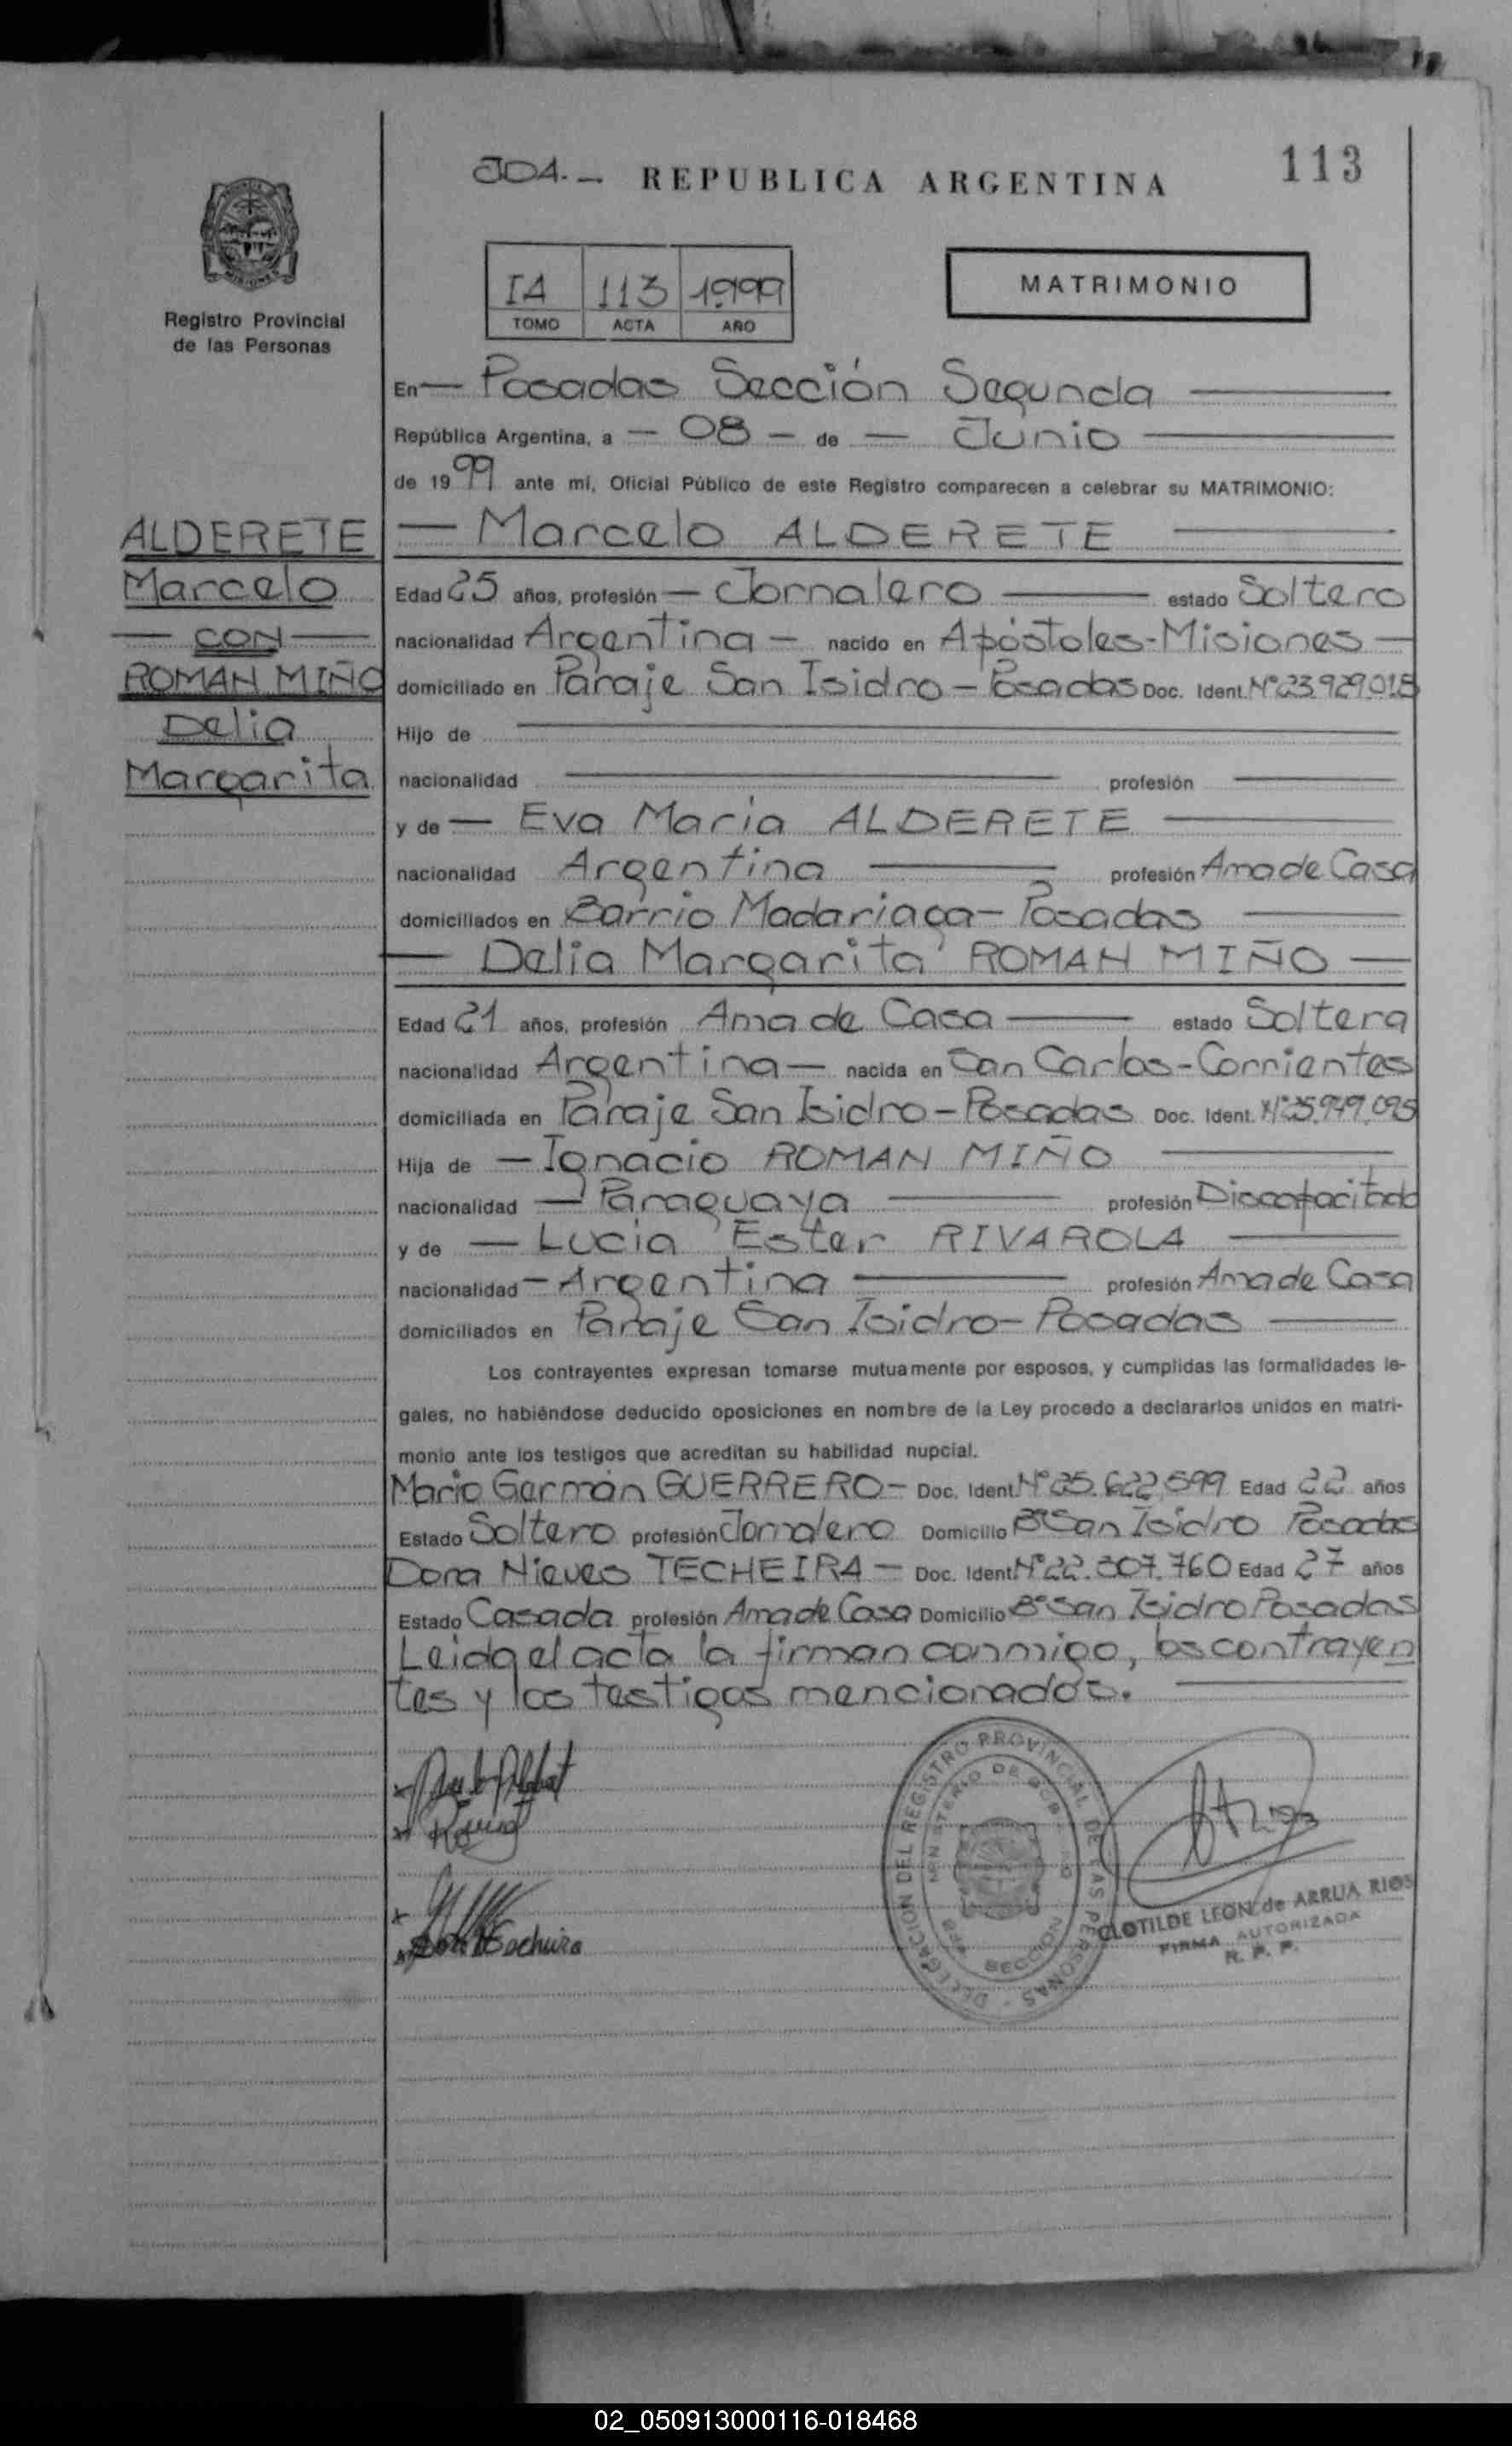 JO4.- REPUBLICA ARGENTINA 113
IA 113 1999
TOMO ACTA AÑO
MATRIMONIO
Registro Provincial
de las Personas
En — Posadas Sección Segunda
República Argentina, a — 08 — de — Junio
de 1999 ante mí, Oficial Público de este Registro comparecen a celebrar su MATRIMONIO:
ALDERETE
Marcelo
— CON —
ROMAN MIÑO
Delia
Margarita
— Marcelo ALDERETE
Edad 25 años, profesión — Jornalero — estado Soltero
nacionalidad Argentina — nacido en Apóstoles-Misiones —
domiciliado en Paraje San Isidro - Posadas Doc. Ident. Nº 23.929.018
Hijo de
nacionalidad profesión
y de — Eva Maria ALDERETE
nacionalidad Argentina — profesión Ama de Casa
domiciliados en Barrio Madariaga - Posadas
— Delia Margarita ROMAN MIÑO —
Edad 21 años, profesión Ama de Casa — estado Soltera
nacionalidad Argentina — nacida en San Carlos-Corrientes
domiciliada en Paraje San Isidro - Posadas Doc. Ident. Nº 25.949.095
Hija de — Ignacio ROMAN MIÑO
nacionalidad — Paraguaya — profesión Discapacitado
y de — Lucia Ester RIVAROLA
nacionalidad — Argentina — profesión Ama de Casa
domiciliados en Paraje San Isidro - Posadas
Los contrayentes expresan tomarse mutuamente por esposos, y cumplidas las formalidades le-
gales, no habiéndose deducido oposiciones en nombre de la Ley procedo a declararlos unidos en matri-
monio ante los testigos que acreditan su habilidad nupcial.
Mario Germán GUERRERO - Doc. Ident. Nº 25.622.599 Edad 22 años
Estado Soltero profesión Jornalero Domicilio Bº San Isidro Posadas
Dora Nieves TECHEIRA - Doc. Ident. Nº 22.307.760 Edad 27 años
Estado Casada profesión Ama de Casa Domicilio Bº San Isidro Posadas
Leida el acta la firman conmigo, los contrayen
tes y los testigos mencionados.
DELEGACION DEL REGISTRO PROVINCIAL DE LAS PERSONAS
SECCION
CLOTILDE LEON de ARRUA RIOS
FIRMA AUTORIZADA
R. P. P.
02_050913000116-018468